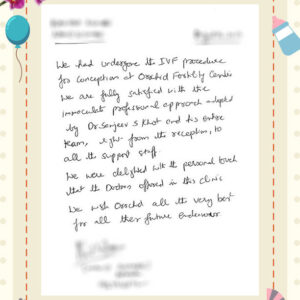 We had undergone the IVF procedure
for conception at Orchid Fertility Center
We are fully satisfied with the
immaculate professional approach adopted
by Dr. Sanjeev S Khot and his entire
team, right from the reception, to
all the support staff.
We were delighted with the personal touch
that the Doctors offered in this clinic
We wish Orchid all the very best
for all their future endeavour